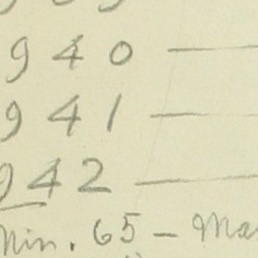 940 —
941 —
942 —
Min. 65 —